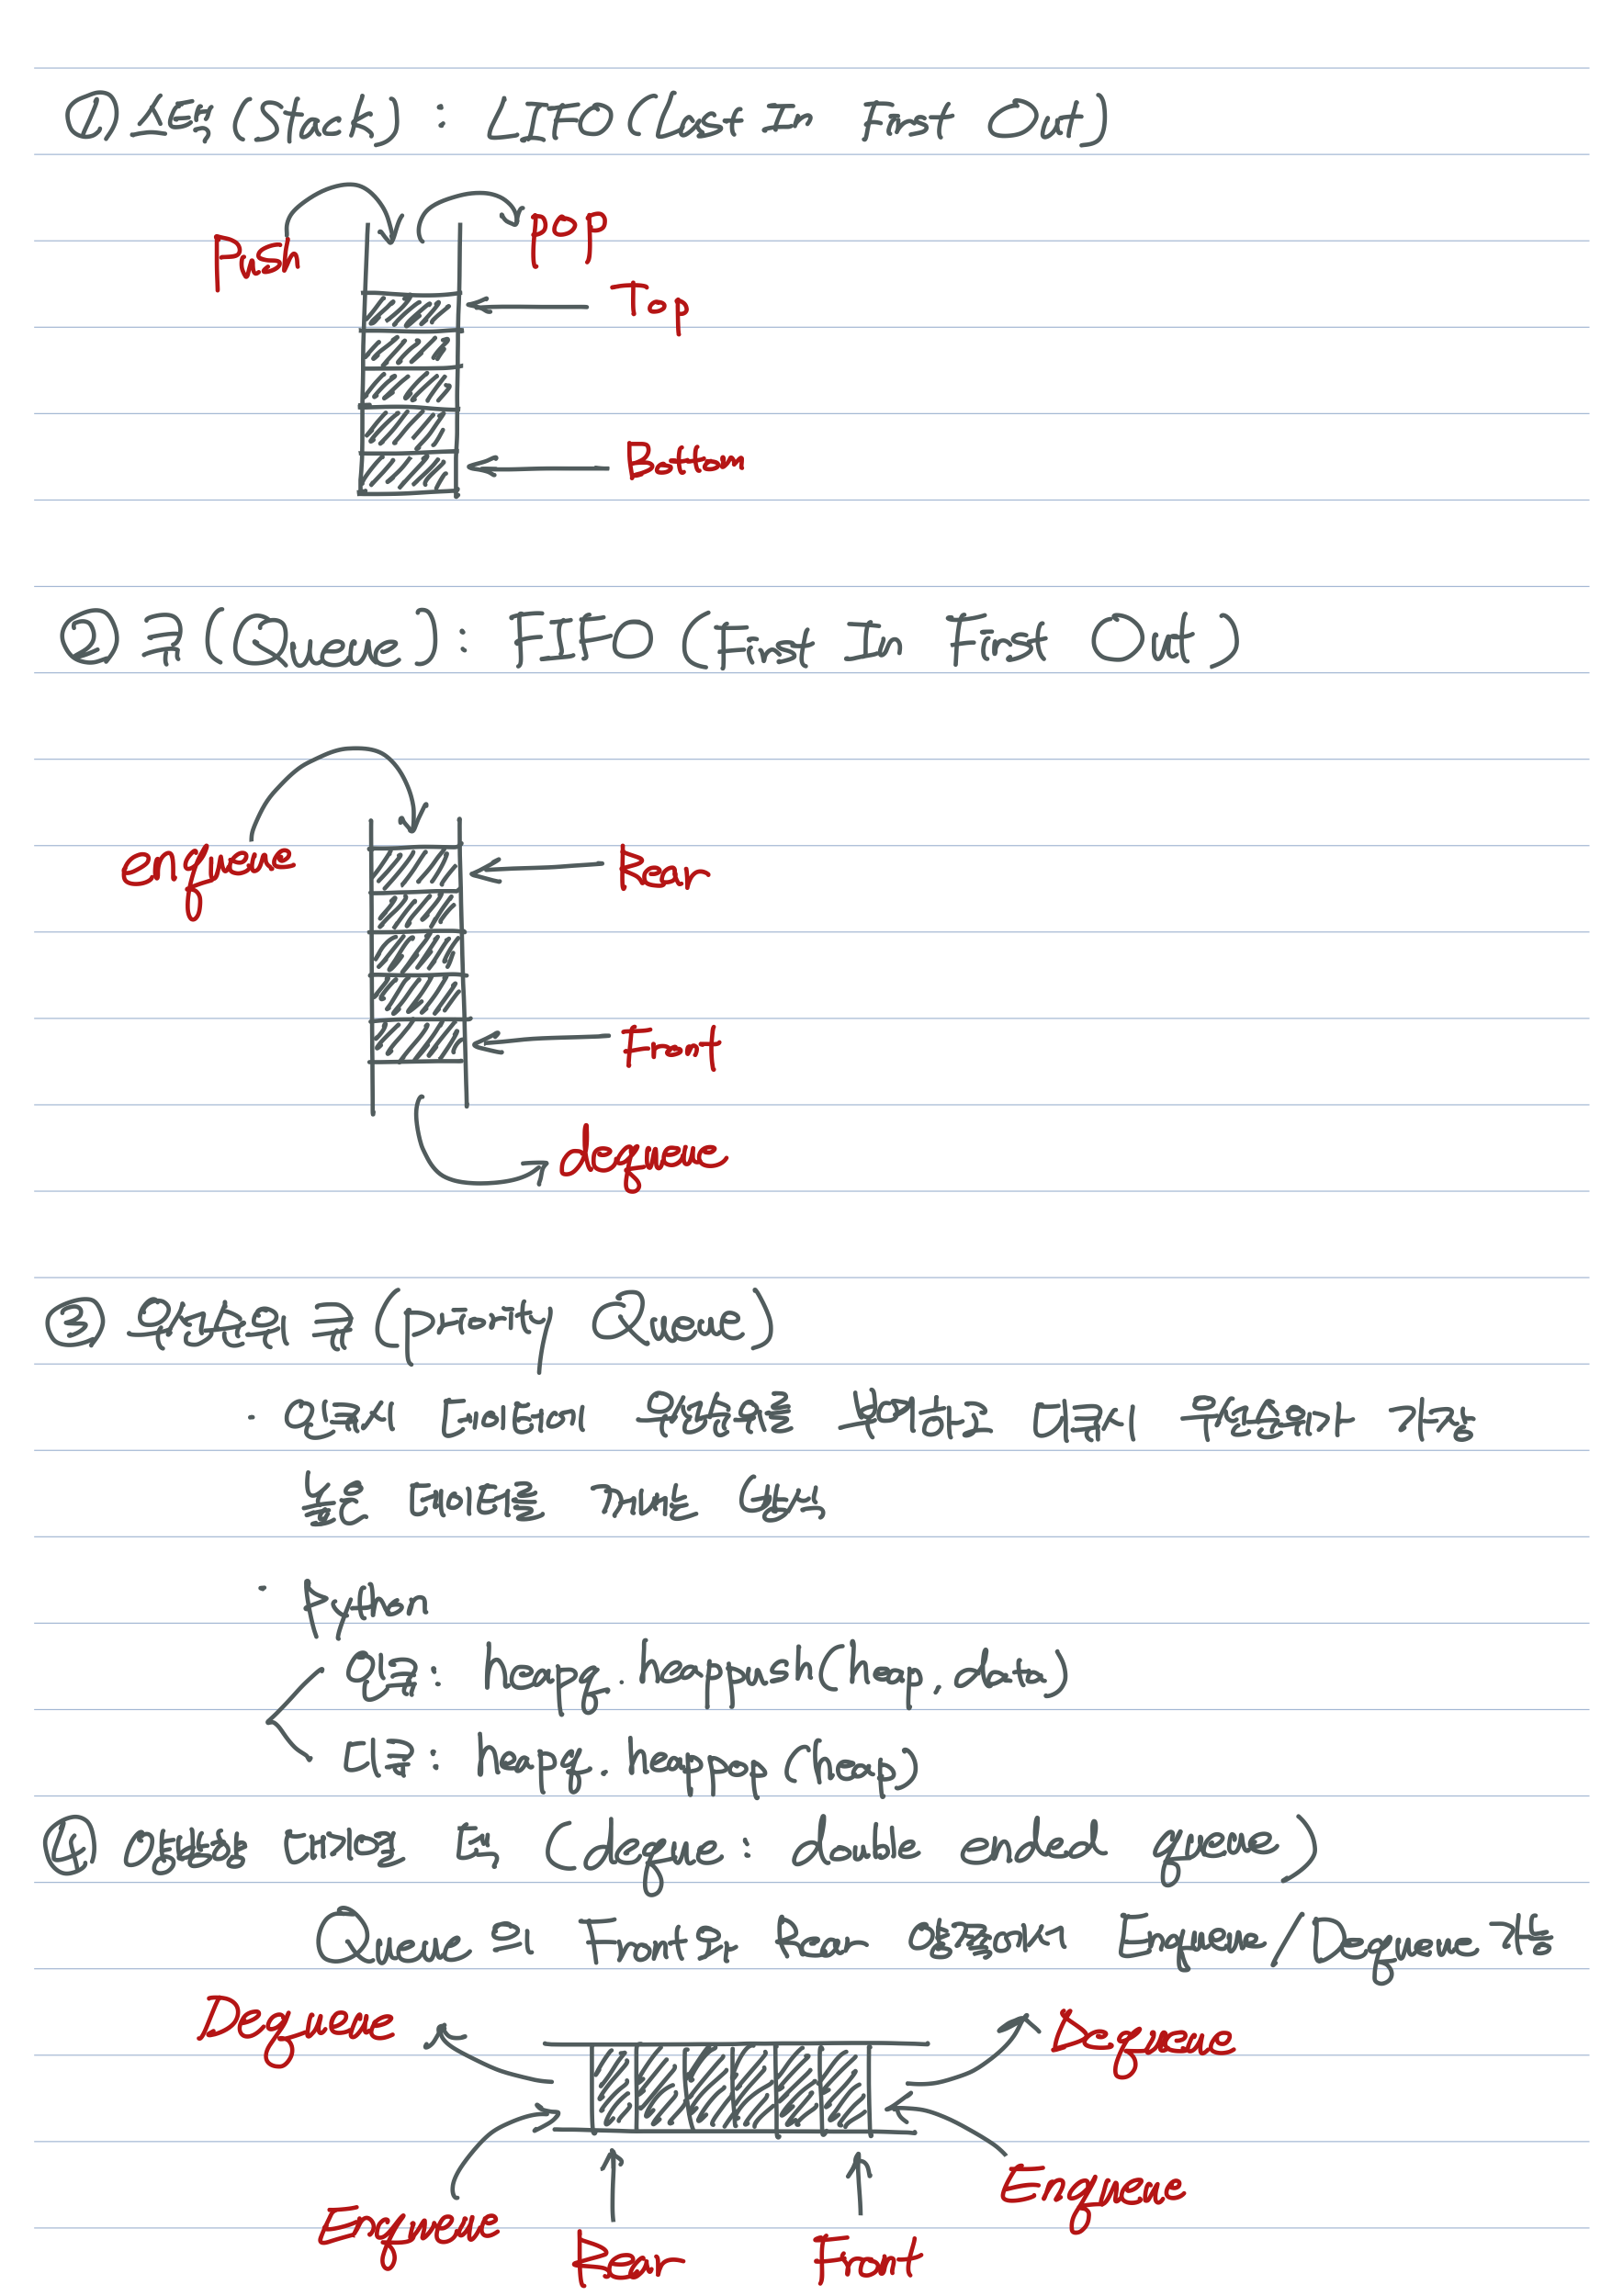 ① 스택 (Stack) : LIFO (Last In First Out)
Push
pop
Top
Bottom
② 큐 (Queue) : FIFO (First In First Out)
enqueue
Rear
Front
dequeue
③ 우선순위 큐 (priority Queue)
· 인큐시 데이터에 우선순위를 부여하고 디큐시 우선순위가 가장
높은 데이터를 꺼내는 방식
· Python
인큐: heapq.heappush(heap, data)
디큐: heapq.heappop (heap)
④ 양방향 대기열 덱 (deque : double ended queue)
Queue 의 Front와 Rear 양쪽에서 Enqueue/Dequeue 가능
Dequeue
Dequeue
Enqueue
Enqueue
Rear
Front